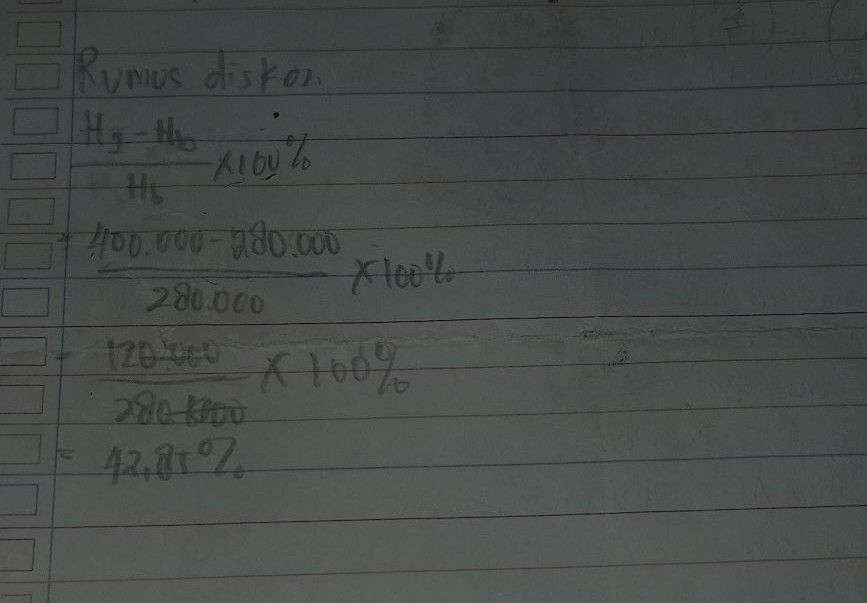 Rumus diskon
Hj - Hb
Hb
x100%
= 400.000 - 280.000
280.000
x100%
= 120.000
280.000
x 100%
= 42,85%